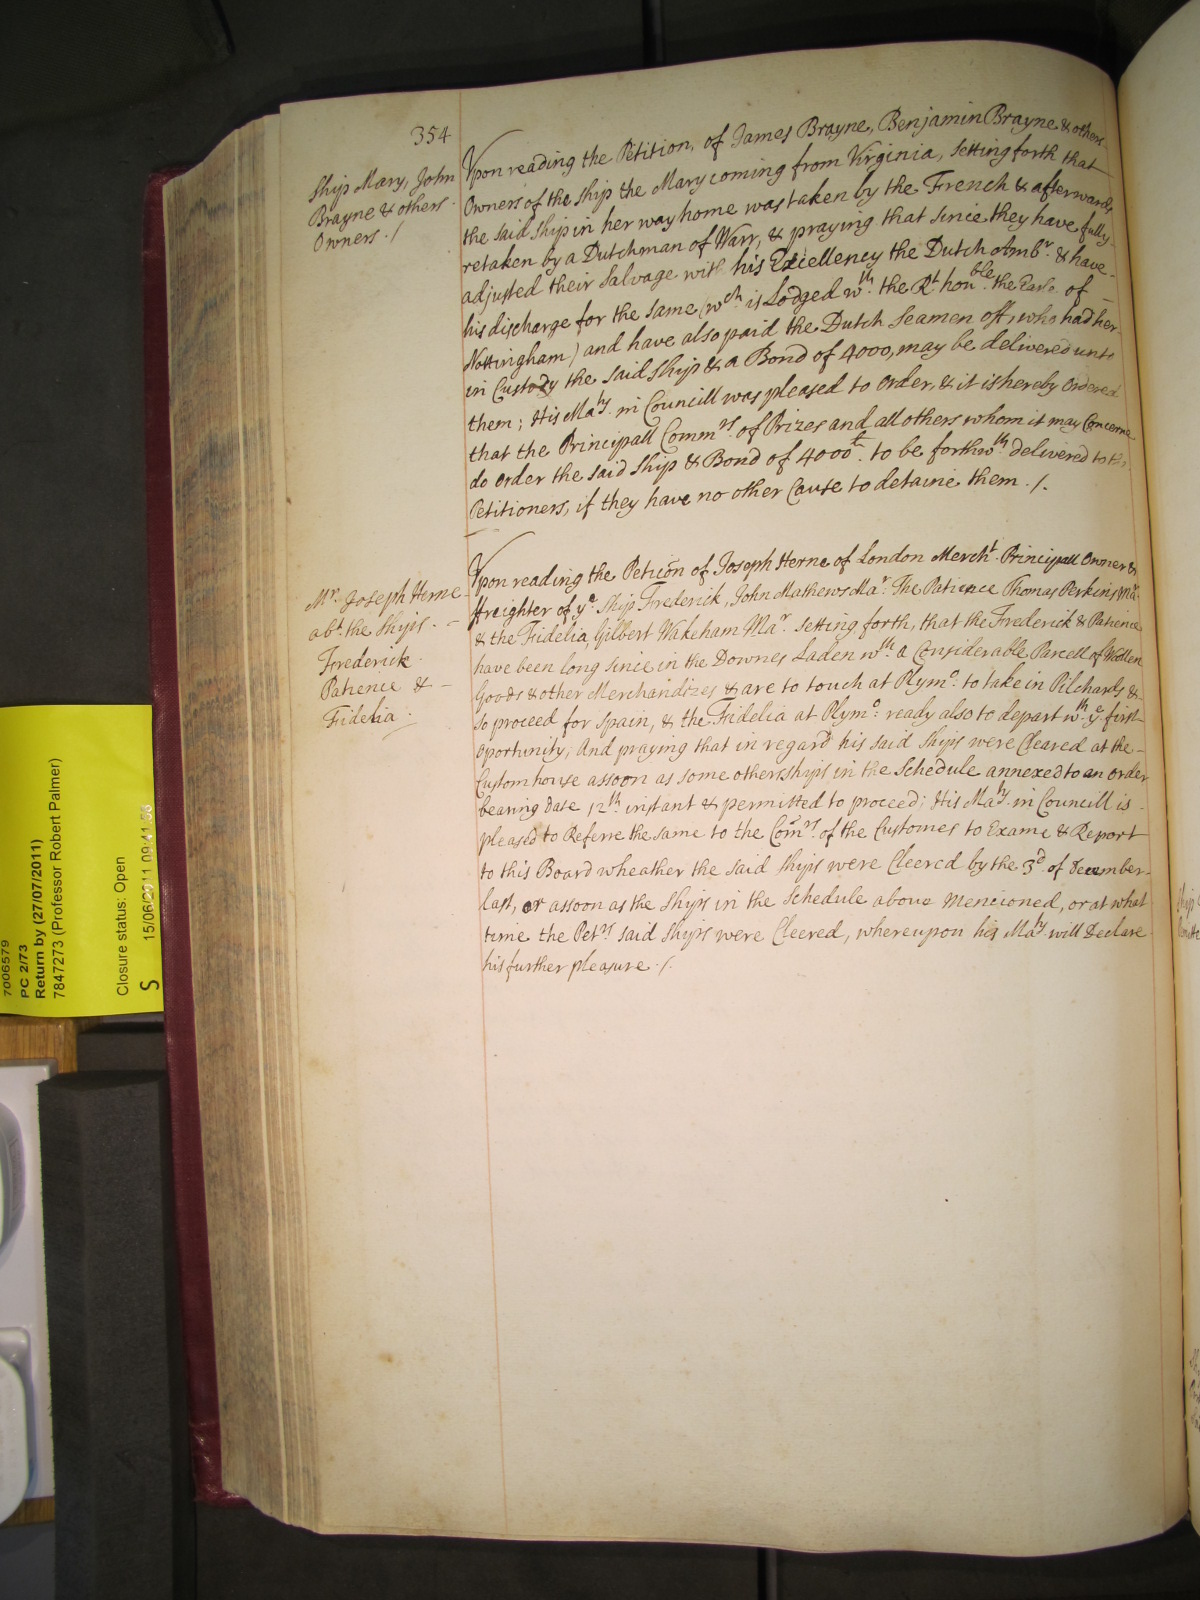 354
Ship Mary, John
Brayne & others
Owners ./
Vpon reading the Petition, of James Brayne, Benjamin Brayne & others
Owners of the Ship the Mary coming from Virginia, setting forth that
the said Ship in her way home was taken by the French & afterwards
retaken by a Dutchman of Warr, & praying that since they have fully
adjusted their Salvage with his Excellency the Dutch Ambr. & have
his discharge for the same (wch is Lodged wth. the Rt honble. the Earle of
Nottingham) and have also paid the Dutch Seamen off, who had her
in Custody the said Ship & a Bond of 4000, may be delivered unto
them; His Maty. in Councill was pleased to order, & it is hereby Ordered
that the Principall Commrs. of Prizes and all others whom it may Concerne
do order the said Ship & Bond of 4000£. to be forthwth delivered to the
Petitioners, if they have no other Cause to detaine them ./.
Mr. Joseph Herne
abt. the Ships
Frederick
Patience &
Fidelia
Vpon reading the Peticon of Joseph Herne of London Mercht. Principall Owner &
ffreighter of ye Ship Frederick, John Mathews Mar. The Patience Thomas Perkins Mar.
& the Fidelia, Gilbert Wakeham Mar. setting forth, that the Frederick & Patience
have been long since in the Downes Laden wth. a Considerable Parcell of Wollen
Goods & other Merchandizes & are to touch at Plymo. to take in Pilchards &
so proceed for Spain, & the Fidelia at Plymo: ready also to depart wth. ye. first
oportunity, And praying that in regard his said Ships were Cleared at the
Customhouse assoon as some other ships in the Schedule annexed to an order
bearing date 12th instant & permitted to proceed; His Maty. in Councill is
pleased to Referre the same to the Comrs. of the Customes to Exame & Report
to this Board wheather the said Ships were Cleered by the 3d of December
last, or assoon as the Ships in the Schedule above Mencioned, or at what
time the Petrs said Ships were Cleered, whereupon his Maty. will Declare
his further pleasure ./.
7006579
PC 2/73
Return by (27/07/2011)
7847273 (Professor Robert Palmer)
Closure status: Open
S 15/06/2011 09:41:58